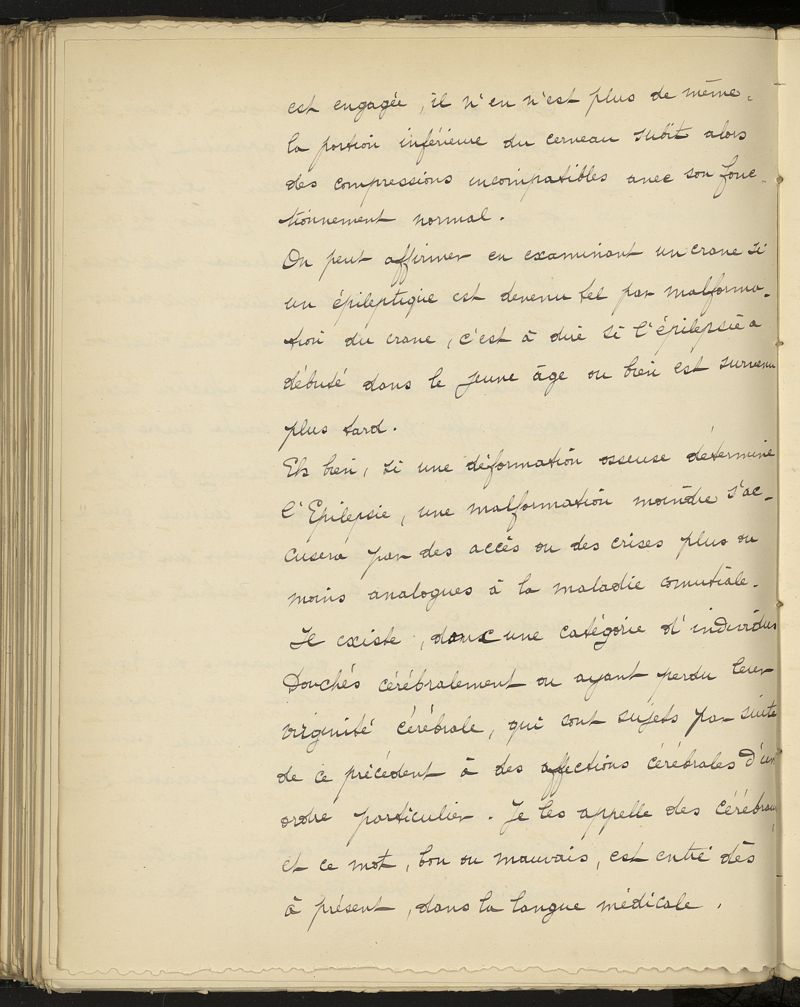 est engagée, il n'en n'est plus de même.
la portion inférieure du cerveau subit alors
des compressions incompatibles avec son fonc-
tionnement normal.
On peut affirmer en examinant un crane si
un épileptique est devenu tel par malforma-
tion du crane, c'est à dire si l'épilepsie a
débuté dans le jeune âge ou bien est survenu
plus tard.
Eh bien, si une déformation osseuse détermine
l'Epilepsie, une malformation moindre s'ac-
cusera par des accès ou des crises plus ou
moins analogues à la maladie comitiale.
Il existe, donc une catégorie d'individus
Douchés cérébralement ou ayant perdu leur
virginité cérébrale, qui sont sujets par suite
de ce précédent à des affections cérébrales d'un
ordre particulier. Je les appelle des cérébraux
et ce mot, bon ou mauvais, est entré dès
à présent, dans la langue médicale.